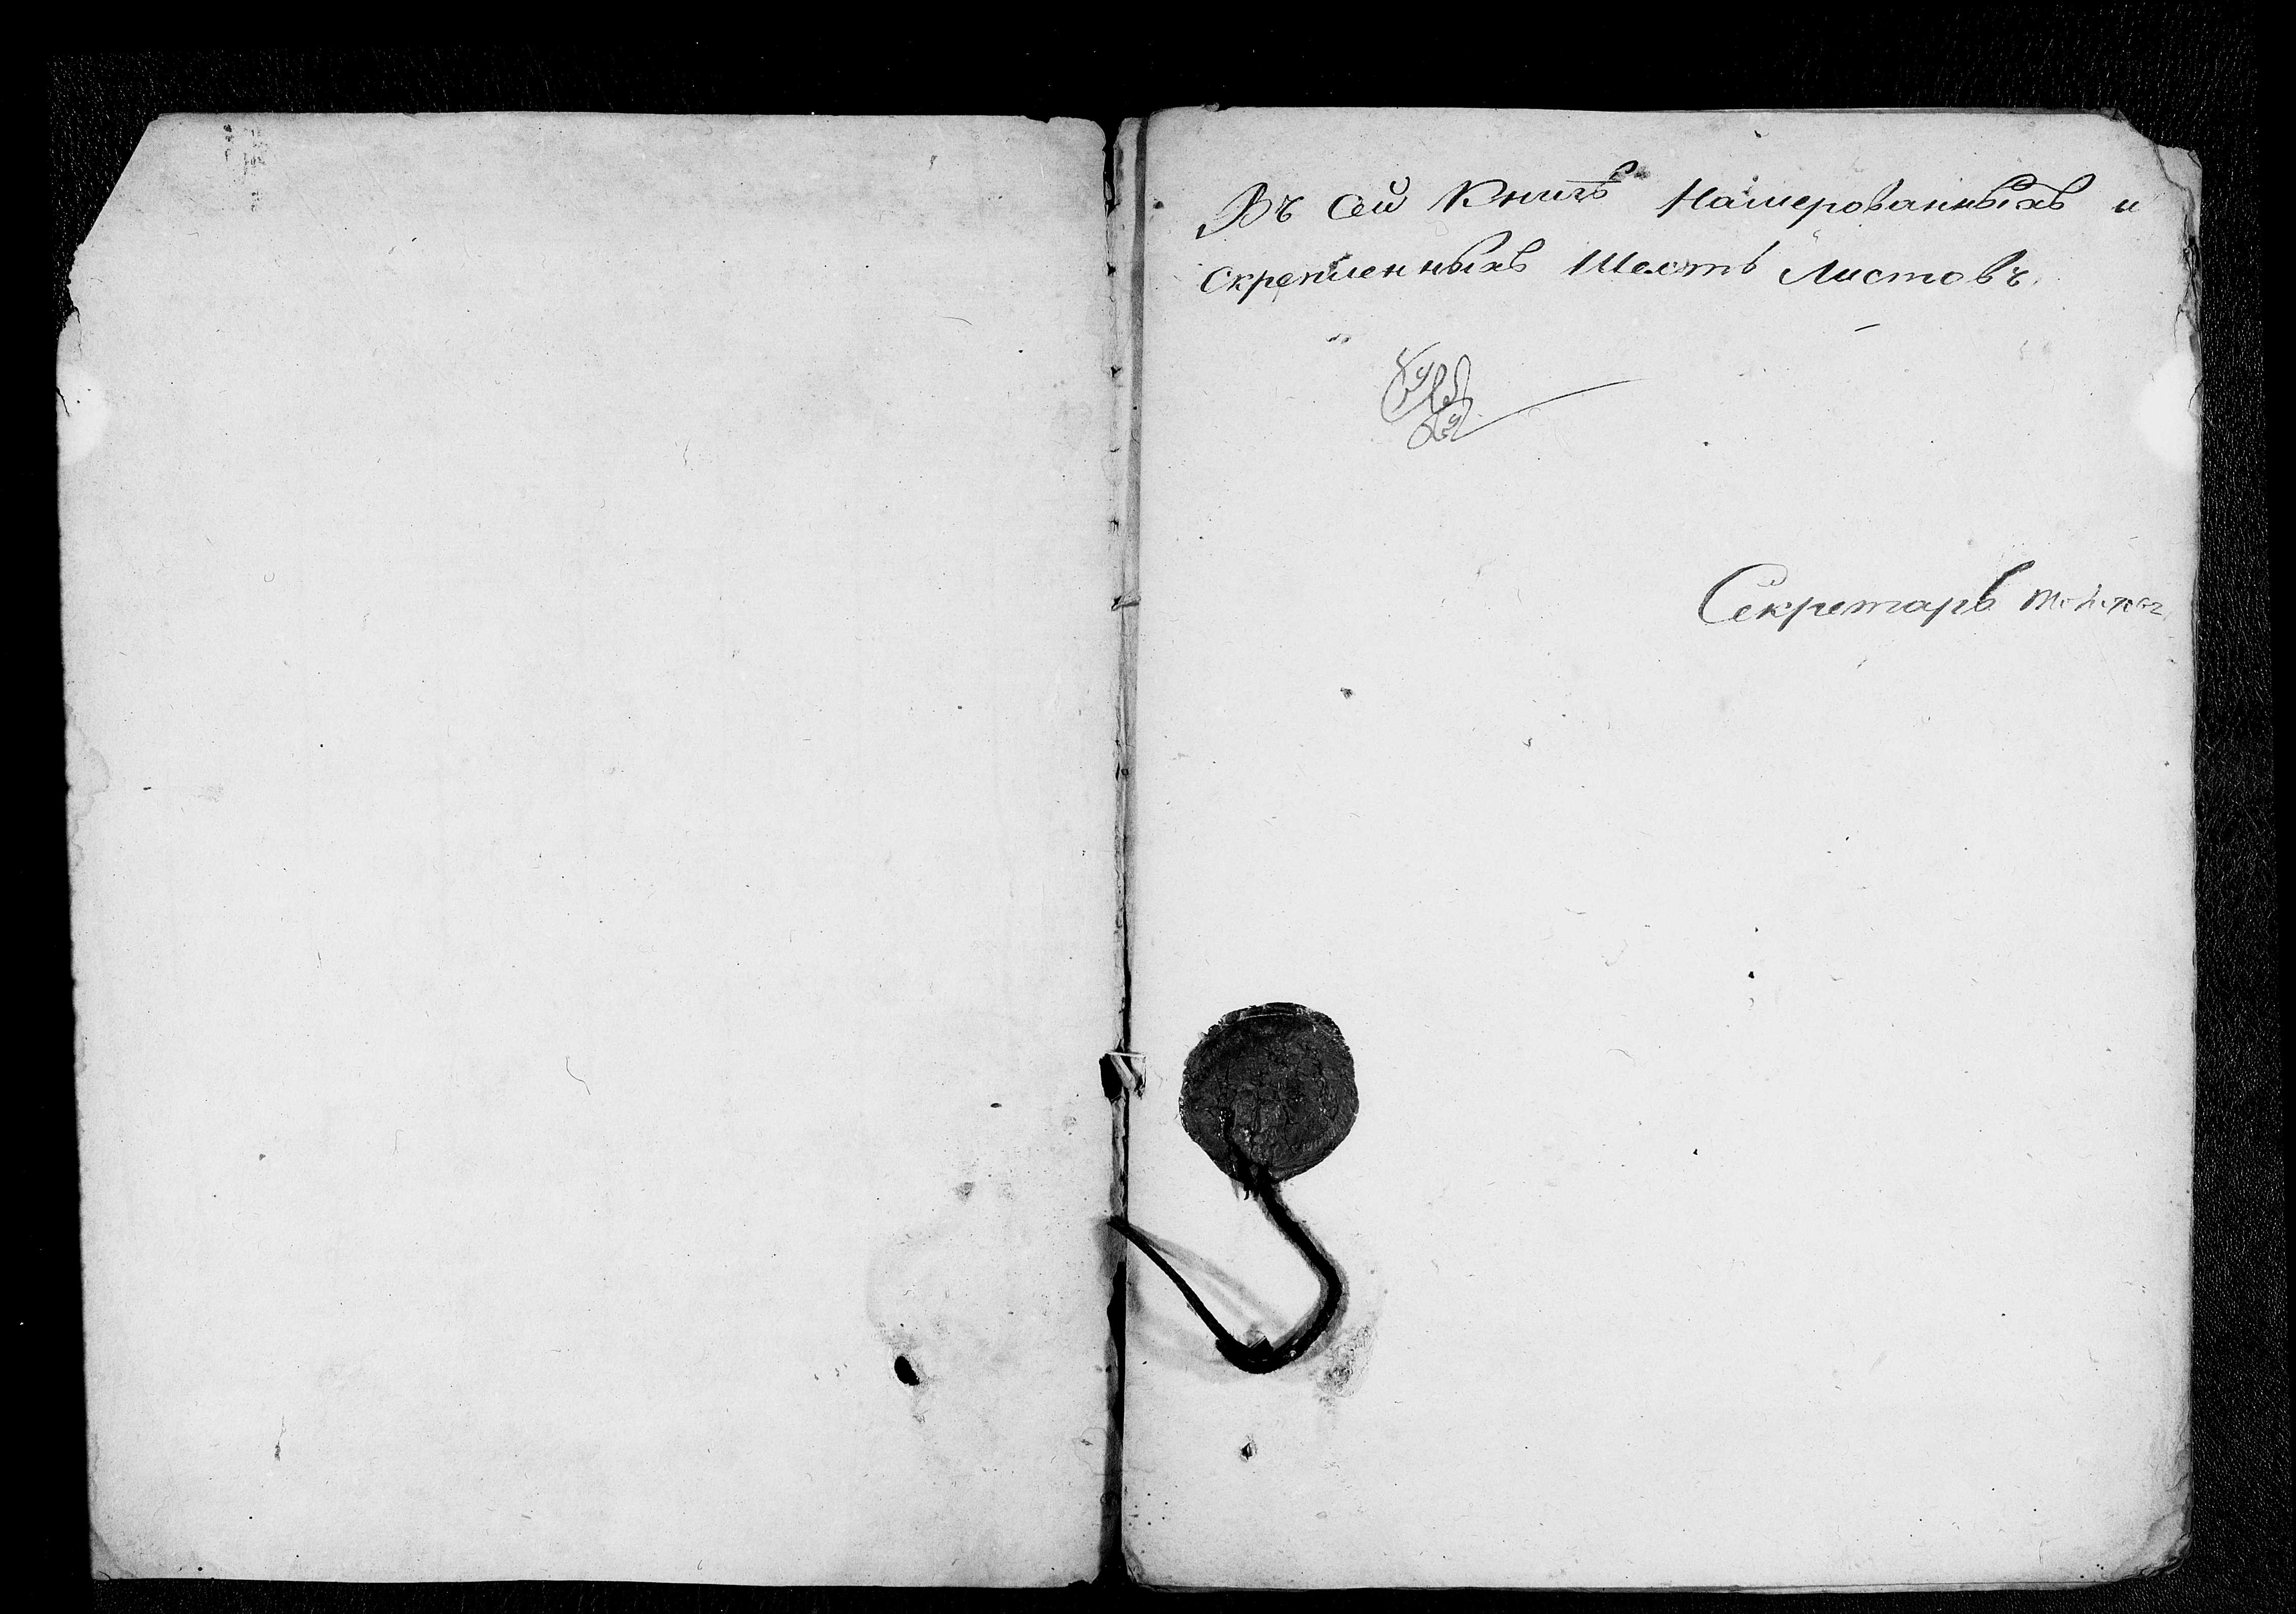 Въ сей Книгѣ Намерованныхъ и
скрепленныхъ Шесть Листовъ.
Секретарь